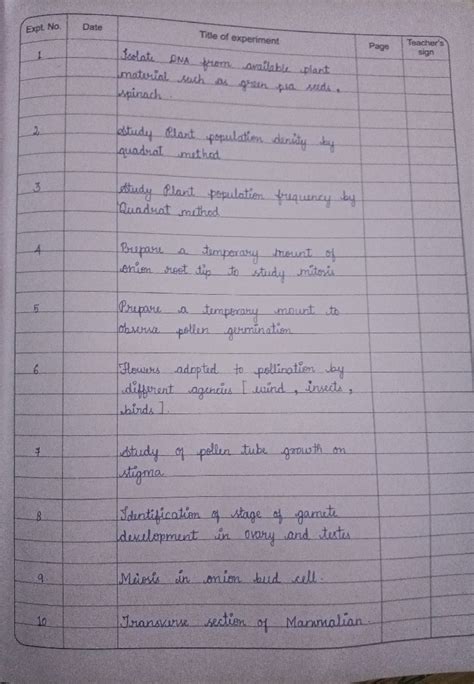 Expt. No. Date Title of experiment Page Teacher's sign
1 Isolate DNA from available plant
material such as green pea seeds,
spinach.
2 Study Plant population density by
quadrat method
3 Study Plant population frequency by
Quadrat method
4 Prepare a temporary mount of
onion root tip to study mitosis
5 Prepare a temporary mount to
observe pollen germination
6 Flowers adopted to pollination by
different agencies [ wind, insects,
birds ].
7 Study of pollen tube growth on
stigma
8 Identification of stage of gamete
development in ovary and testes
9 Meiosis in onion bud cell.
10 Transverse section of Mammalian.